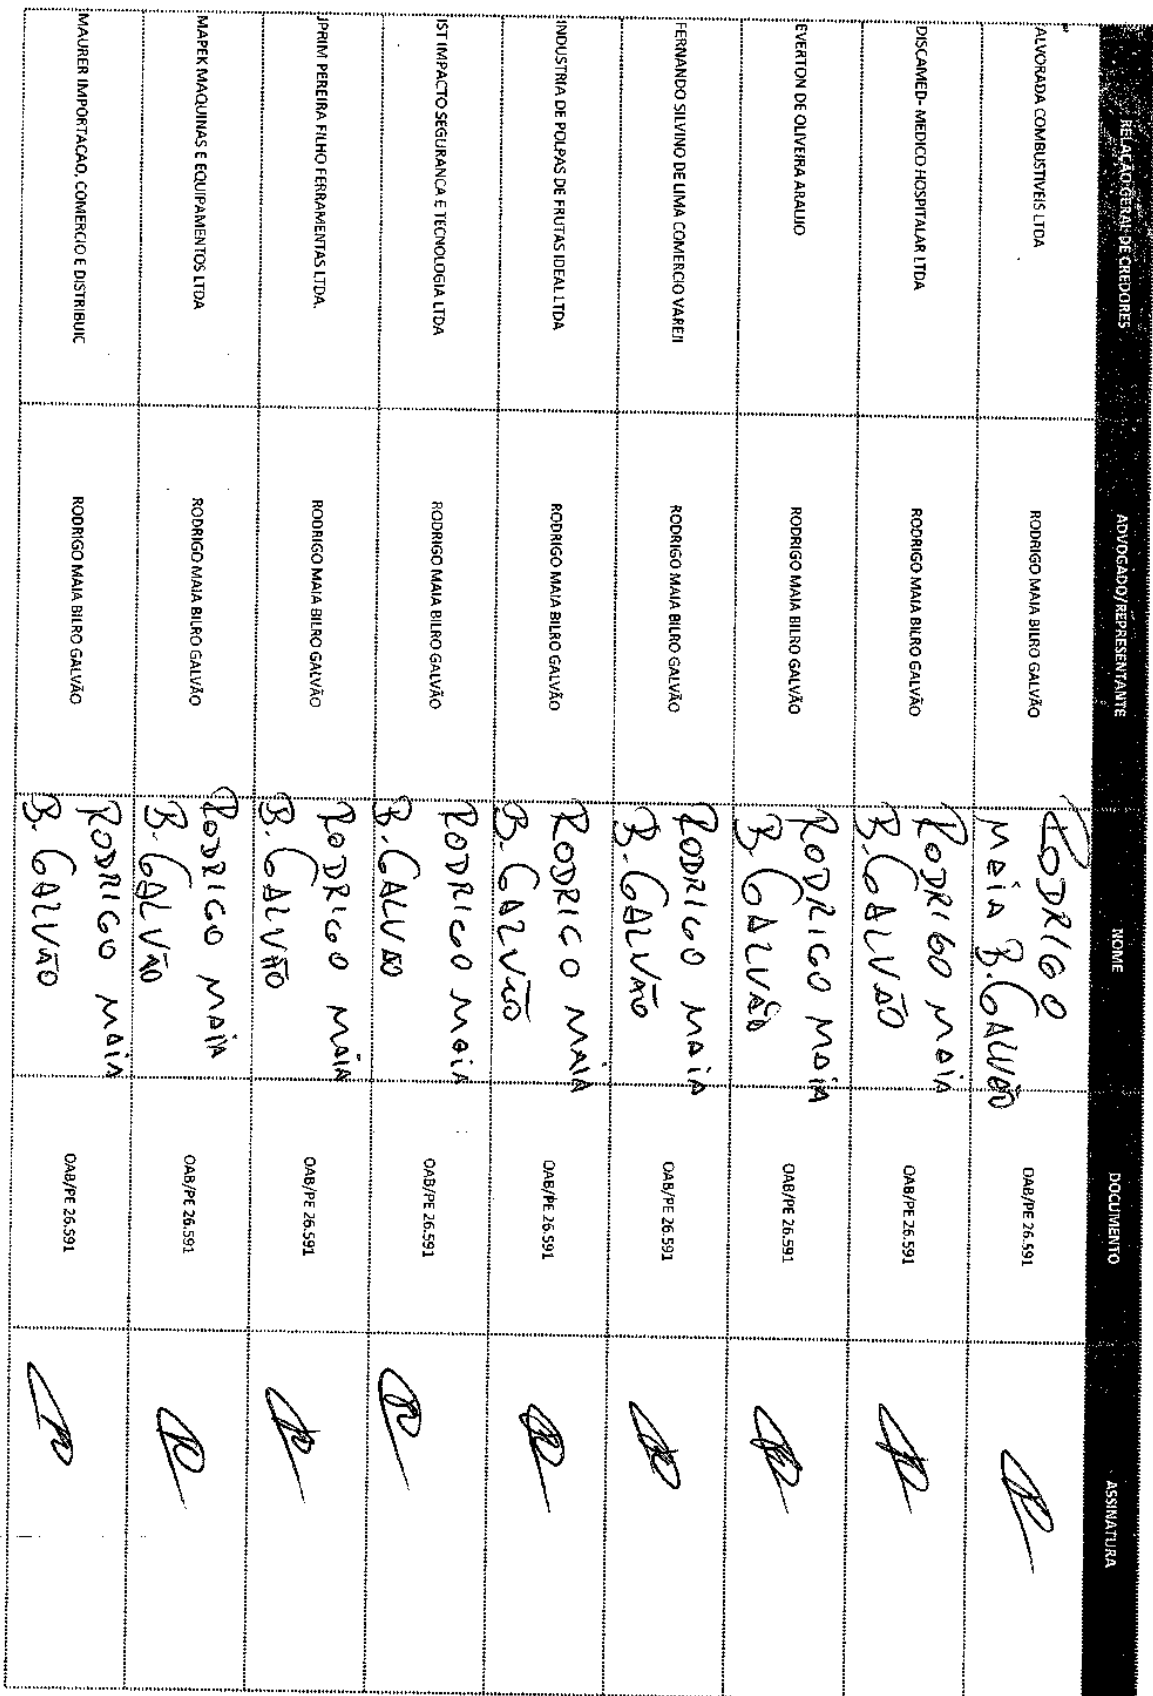 RELAÇÃO GERAL DE CREDORES ADVOGADO/REPRESENTANTE NOME DOCUMENTO ASSINATURA
ALVORADA COMBUSTIVEIS LTDA RODRIGO MAIA BILRO GALVÃO RODRIGO OAB/PE 26.591
MAIA B. GALVÃO
DISCAMED- MEDICO HOSPITALAR LTDA RODRIGO MAIA BILRO GALVÃO RODRIGO MAIA OAB/PE 26.591
B. GALVÃO
EVERTON DE OLIVEIRA ARAUJO RODRIGO MAIA BILRO GALVÃO RODRIGO MAIA OAB/PE 26.591
B. GALVÃO
FERNANDO SILVINO DE LIMA COMERCIO VAREJI RODRIGO MAIA BILRO GALVÃO RODRIGO MAIA OAB/PE 26.591
B. GALVÃO
INDUSTRIA DE POLPAS DE FRUTAS IDEAL LTDA RODRIGO MAIA BILRO GALVÃO RODRIGO MAIA OAB/PE 26.591
B. GALVÃO
IST IMPACTO SEGURANCA E TECNOLOGIA LTDA RODRIGO MAIA BILRO GALVÃO RODRIGO MAIA OAB/PE 26.591
B. GALVÃO
JPRIM PEREIRA FILHO FERRAMENTAS LTDA. RODRIGO MAIA BILRO GALVÃO RODRIGO MAIA OAB/PE 26.591
B. GALVÃO
MAPEK MAQUINAS E EQUIPAMENTOS LTDA RODRIGO MAIA BILRO GALVÃO RODRIGO MAIA OAB/PE 26.591
B. GALVÃO
MAURER IMPORTACAO, COMERCIO E DISTRIBUIC RODRIGO MAIA BILRO GALVÃO RODRIGO MAIA OAB/PE 26.591
B. GALVÃO